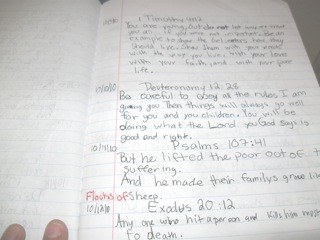 1 Timothy 4:12
You are young, but do not let anyone treat
you as if you were not important. Be an
example to show the believers how they
should live. Show them with your words,
with the way you live, with your love,
with your faith, and with your pure
life.
Deuteronomy 12:28
10/10/10
Be careful to obey all the rules I am
giving you. Then things will always go well
for you and you children. You will be
doing what the Lord your God says is
good and right.
Psalms 107:41
10/11/10
But he lifted the poor out of t
suffering.
And he made their familys grow like
Flocks of Sheep.
Exodus 20:12
10/12/10
Any one who hit a person and kills him must
to death.